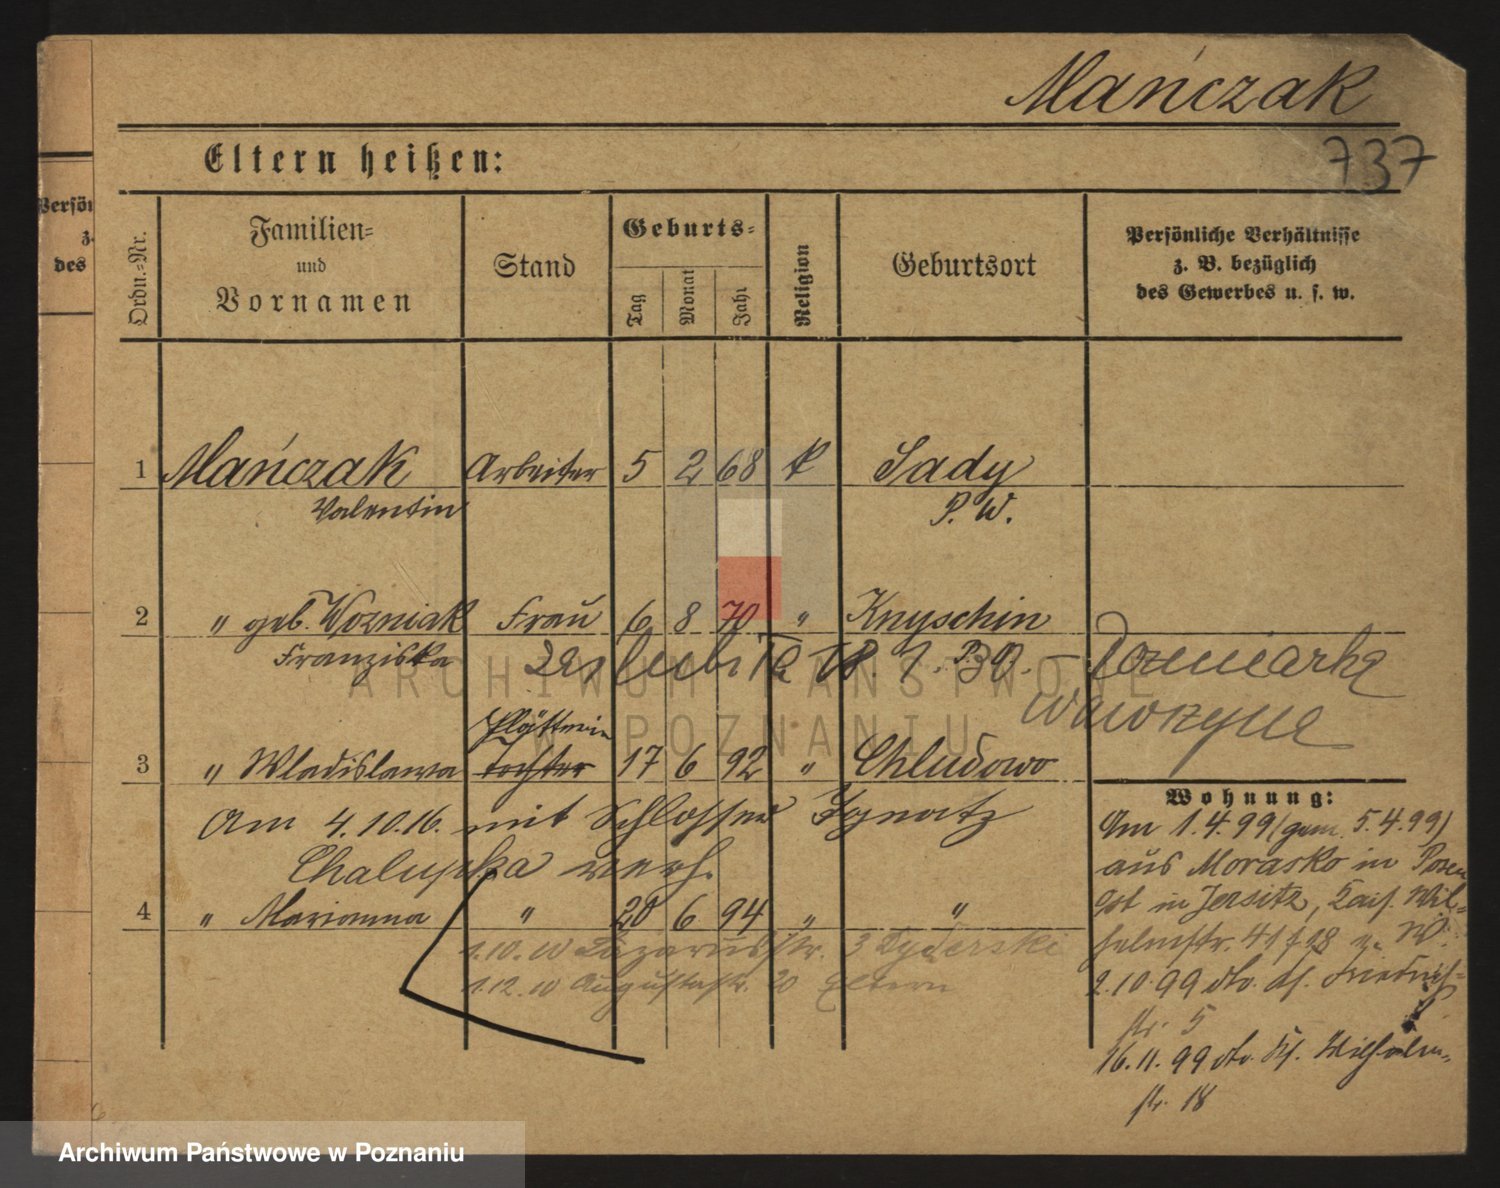 Mańczak
737
Eltern heißen:
Persön
z.
des
Ordn.-Nr.
Familien-
und
Vornamen
Stand
Geburts-
Tag
Monat
Jahr
Religion
Geburtsort
Persönliche Verhältnisse
z. B. bezüglich
des Gewerbes u. s. w.
1 Mańczak Arbeiter 5 2 68 k Sady
Valentin P. W.
2 " geb. Wozniak Frau 6 8 70 " Knyschin
Franziska
ARCHIWUM PAŃSTWOWE
W POZNANIU
Plätterin
3 " Wladislawa Tochter 17 6 92 " Chludowo
Am 4.10.16. mit Schlosser Ignatz
Chalupka verh.
4 " Marianna " 20 6 94 " "
1.10.10 Lazarusstr. 3 Dyderski
1.12.10 Augustastr. 20 Eltern
Wohnung:
Am 1.4.99 (gem. 5.4.99)
aus Morasko in Posen
in Jersitz, Kais. Wil-
helmstr. 41
2.10.99 dto. Friedrich-
str. 5
16.11.99 dto. Wilhelm-
str. 18
Archiwum Państwowe w Poznaniu